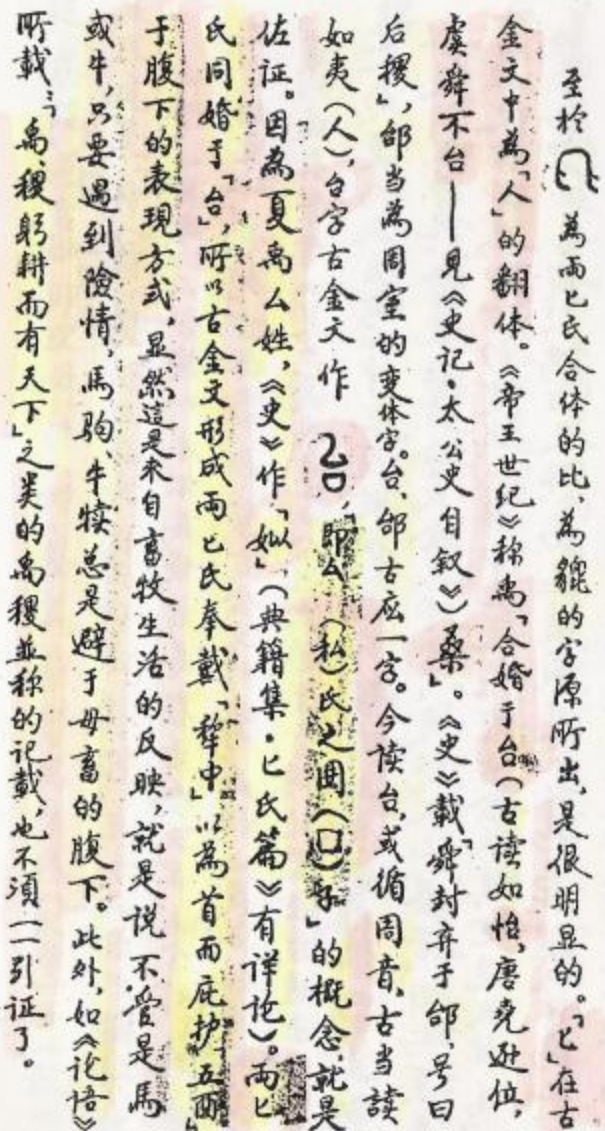 至於 為兩匕氏合体的比，為貔的字源所出，是很明显的。「匕」在古
金文中為「人」的翻体。《帝王世纪》称禹「合婚于台（古读如怡，唐尧逊位，
虞舜不台——見《史记·太公史自叙》）桑」。《史》載「舜封弃于邰，号曰
后稷」，邰当為周室的变体字。台、邰古应一字。今读台，或循周音，古当读
如夷（人），台字古金文作 「即厶（私）氏之囯（口）子」的概念，就是
佐证。因為夏禹厶姓，《史》作「姒」（典籍集·匕氏篇》有详论）。兩匕
氏同婚于「台」，所以古金文形成兩匕氏奉戴「犂中」以為首而庇护「五酉」
于腹下的表現方式，显然這是來自畜牧生活的反映，就是说不管是馬
或牛，只要遇到險情，馬驹、牛犊总是避于母畜的腹下。此外，如《论语》
所載：「禹、稷躬耕而有天下」之类的禹稷並称的记載，也不須一一引证了。